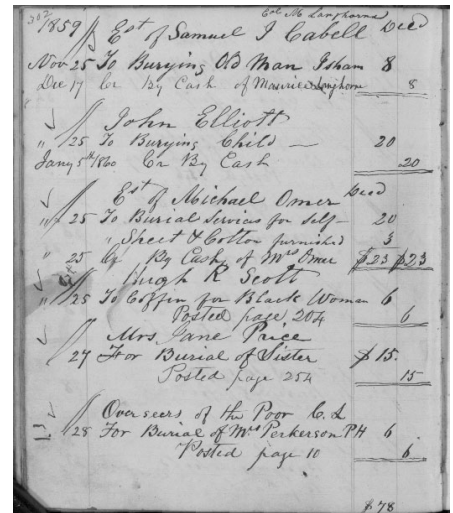 302
Col M Langhorne
1859 Est of Samuel J Cabell Decd
Nov 25 To Burying Old Man Isham 8
Dec 17 Cr By Cash of Maurice Langhorn 8
John Elliott
" 25 To Burying Child — 20
Jany 5th 1860 Cr By Cash 20
Est of Michael Omer Decd
" 25 To Burial Services for self – 20
" Sheet & Cotton furnished 3
" 25 Cr By Cash of Mrs Omer $23 $23
Hugh R Scott
" 25 To Coffin for Black Woman 6
Posted page 204 6
Mrs Jane Price
27 For Burial of Sister $15.
Posted page 254 15
Overseers of the Poor C. L
28 For Burial of Mrs Perkerson PH 6
Posted page 10 6
$78